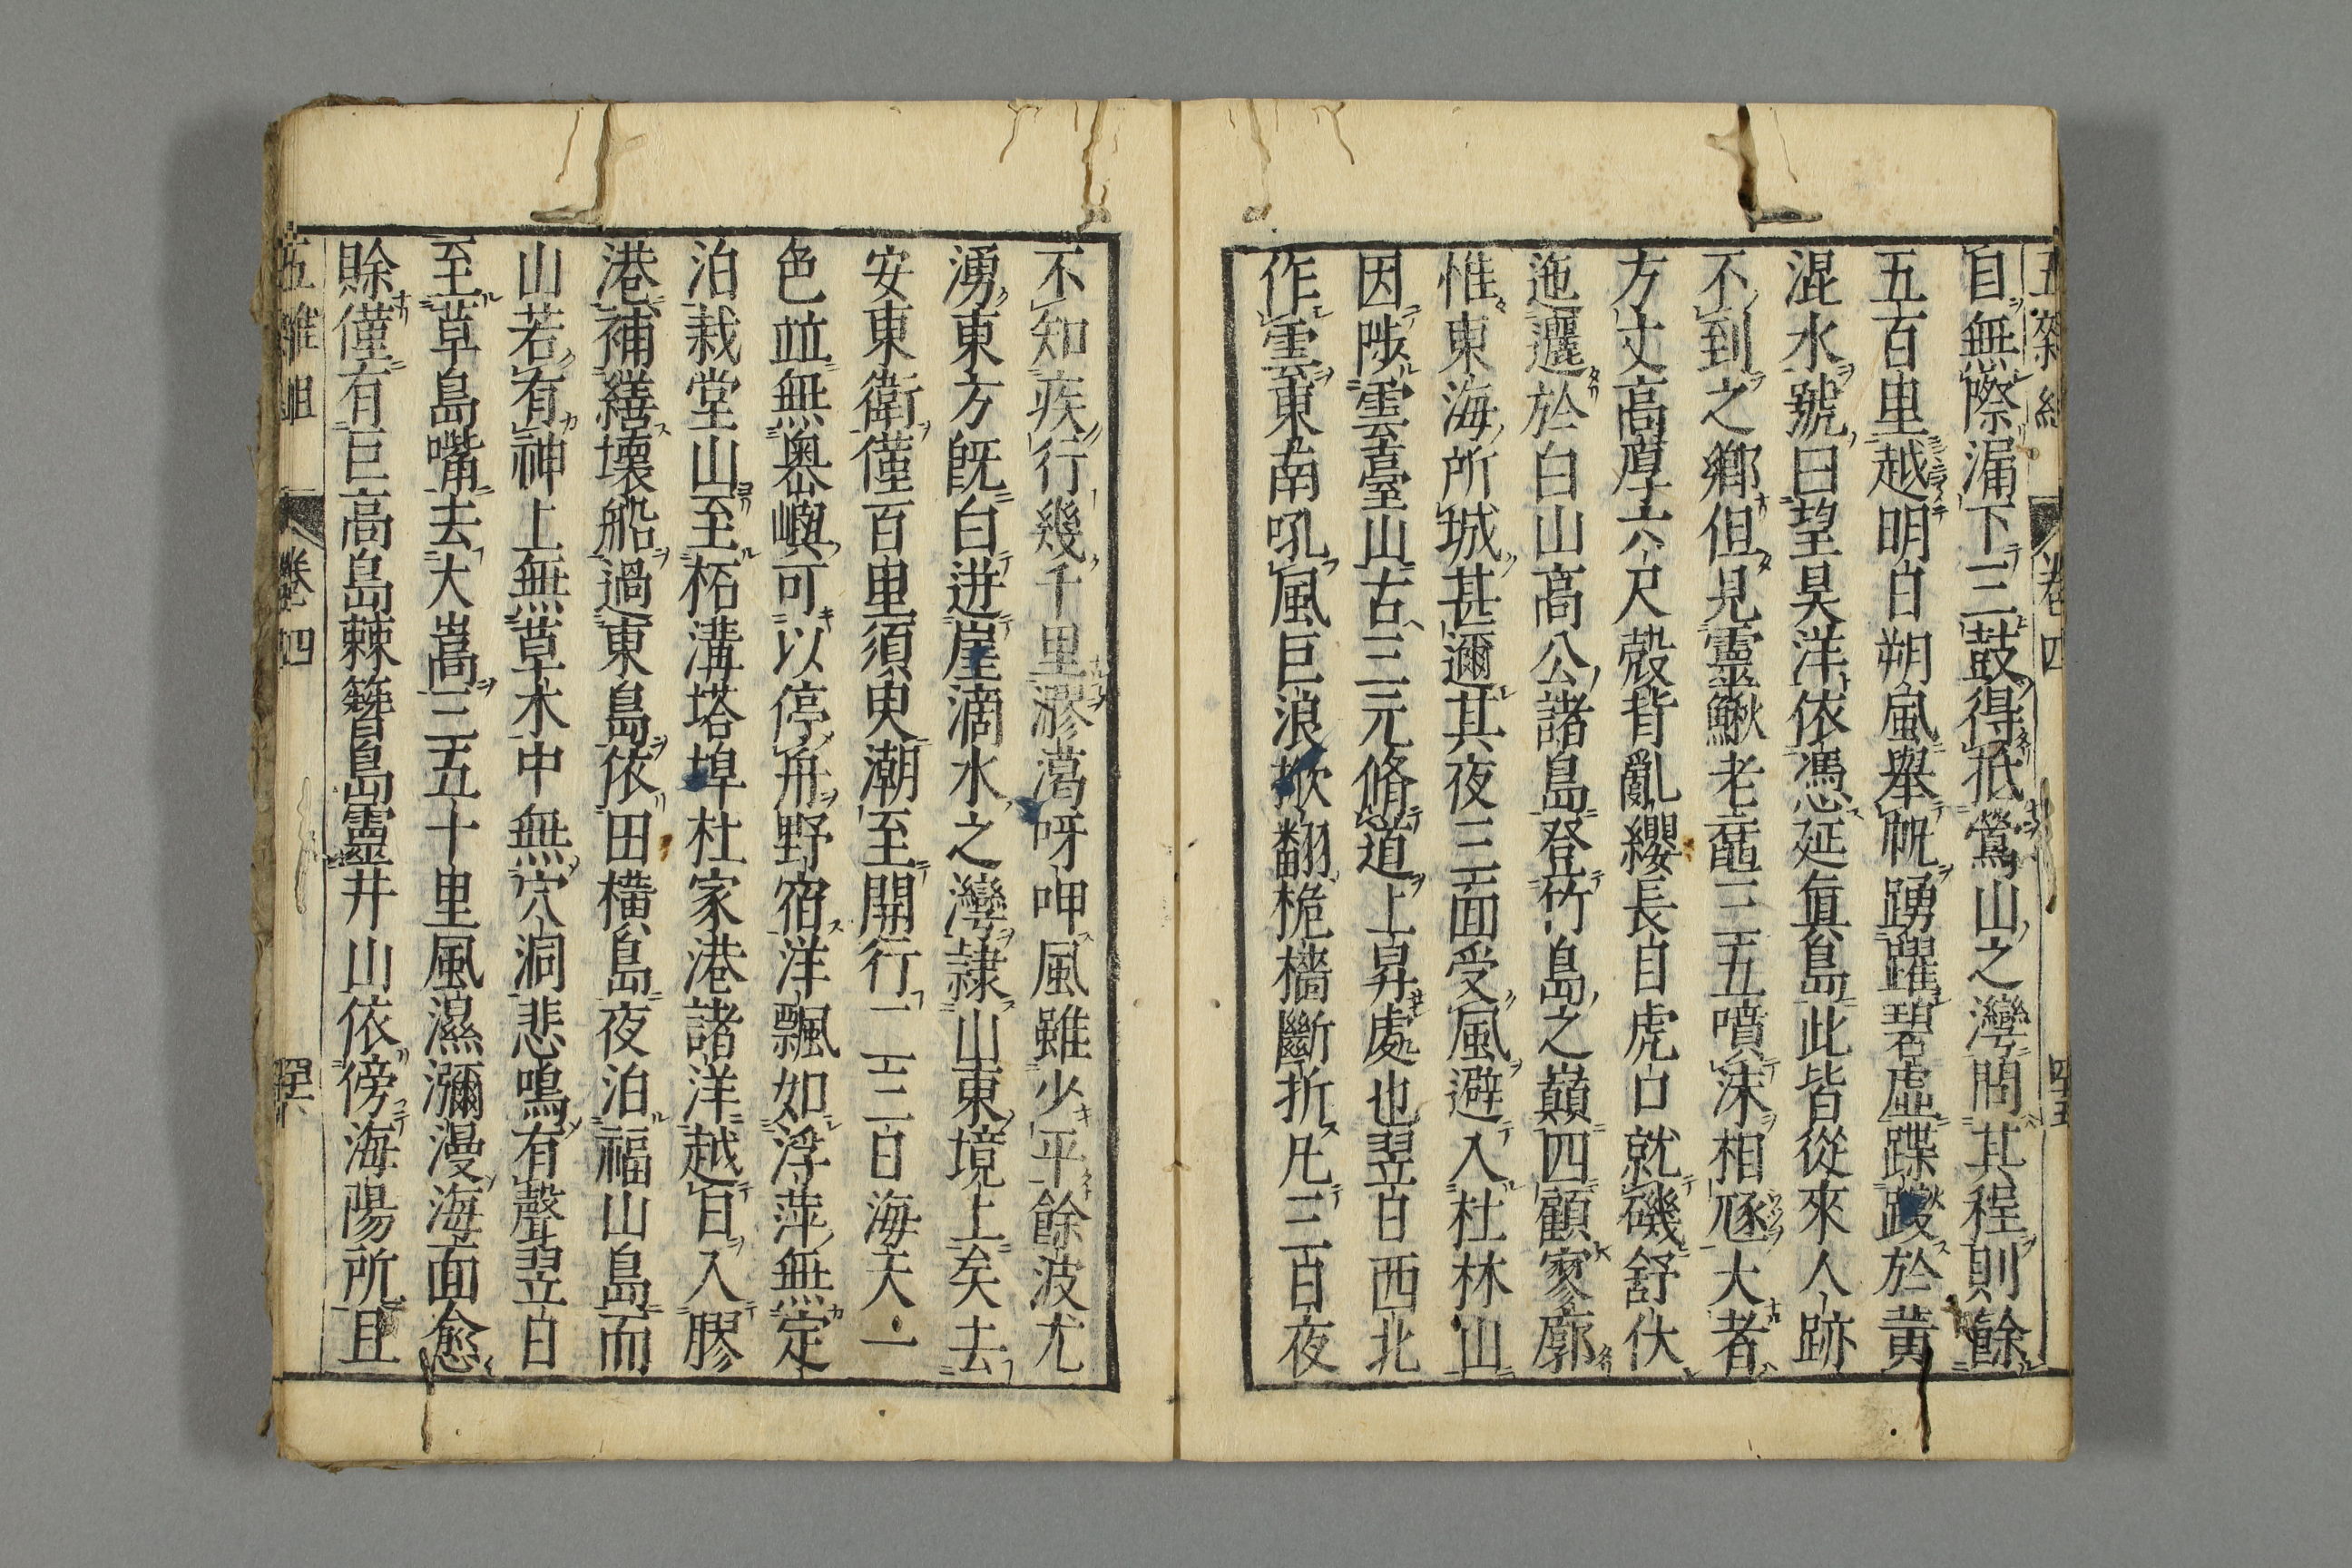 五雜組 卷四
自無際漏下三鼓得抵鶯山之灣問其程則餘
五百里越明白朔風舉帆踴躍碧虛蹀躞於黃
混水號曰望昊洋依憑延眞島此皆從來人跡
不到之鄉但見靈鰍老黿三五噴沫相逐大者
方丈高厚六尺殼背亂纓長目虎口就磯舒伏
迤邐於白山高公諸島登竹島之巔四顧寥廓
惟東海所城甚邇其夜三面受風避入杜林山
因陟雲臺山古三元脩道上昇處也翌日西北
作雲東南吼風巨浪掀翻桅檣斷折凡三百夜
不知疾行幾千里漻㵧呀呷風雖少平餘波尤
湧東方既白迸崖滴水之灣隷山東境上矣去
安東衛僅百里須臾潮至開行一二三日海天一
色竝無奧嶴嶼可以停舟野宿洋飄如浮萍無定
泊栽堂山至柘溝塔埠杜家港諸洋越日入膠
港補繕壞船過東島依田橫島夜泊福山島而
山若有神上無草木中無穴洞悲鳴有聲翌日
至草島嘴去大嵩三五十里風濕瀰漫海面愈
賖僅有巨高島棘簪島靈井山依傍海陽所且
五雜組 卷四